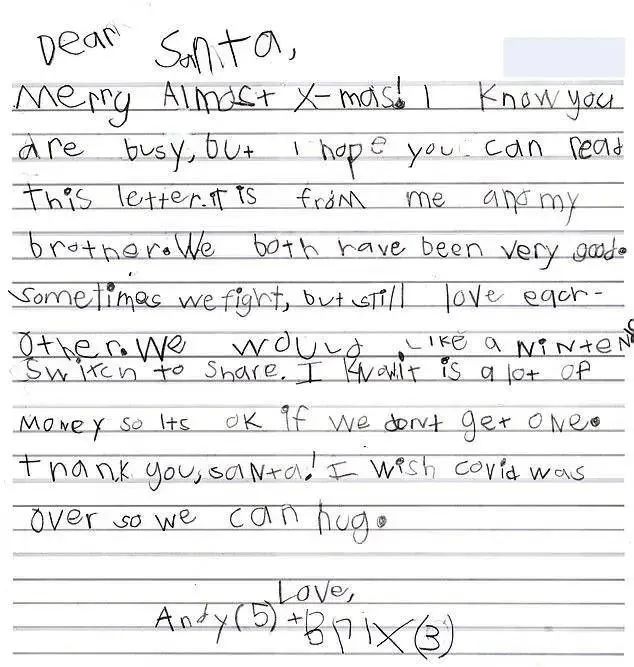 Dear Santa,
Merry Almost X-mas! I know you
are busy, but I hope you can read
this letter. It is from me and my
brother. We both have been very good.
Sometimes we fight, but still love each-
other. We would like a Ninten
Switch to share. I know it is a lot of
money so its ok if we dont get one.
Thank you, Santa! I wish covid was
over so we can hug.
Love,
Andy (5) + Brix (3)